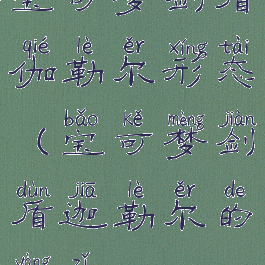 qié lè ěr xíng tài
伽勒尔形态
bǎo kě mèng jiàn
（宝可梦剑
dùn jiā lè ěr de
盾迦勒尔的